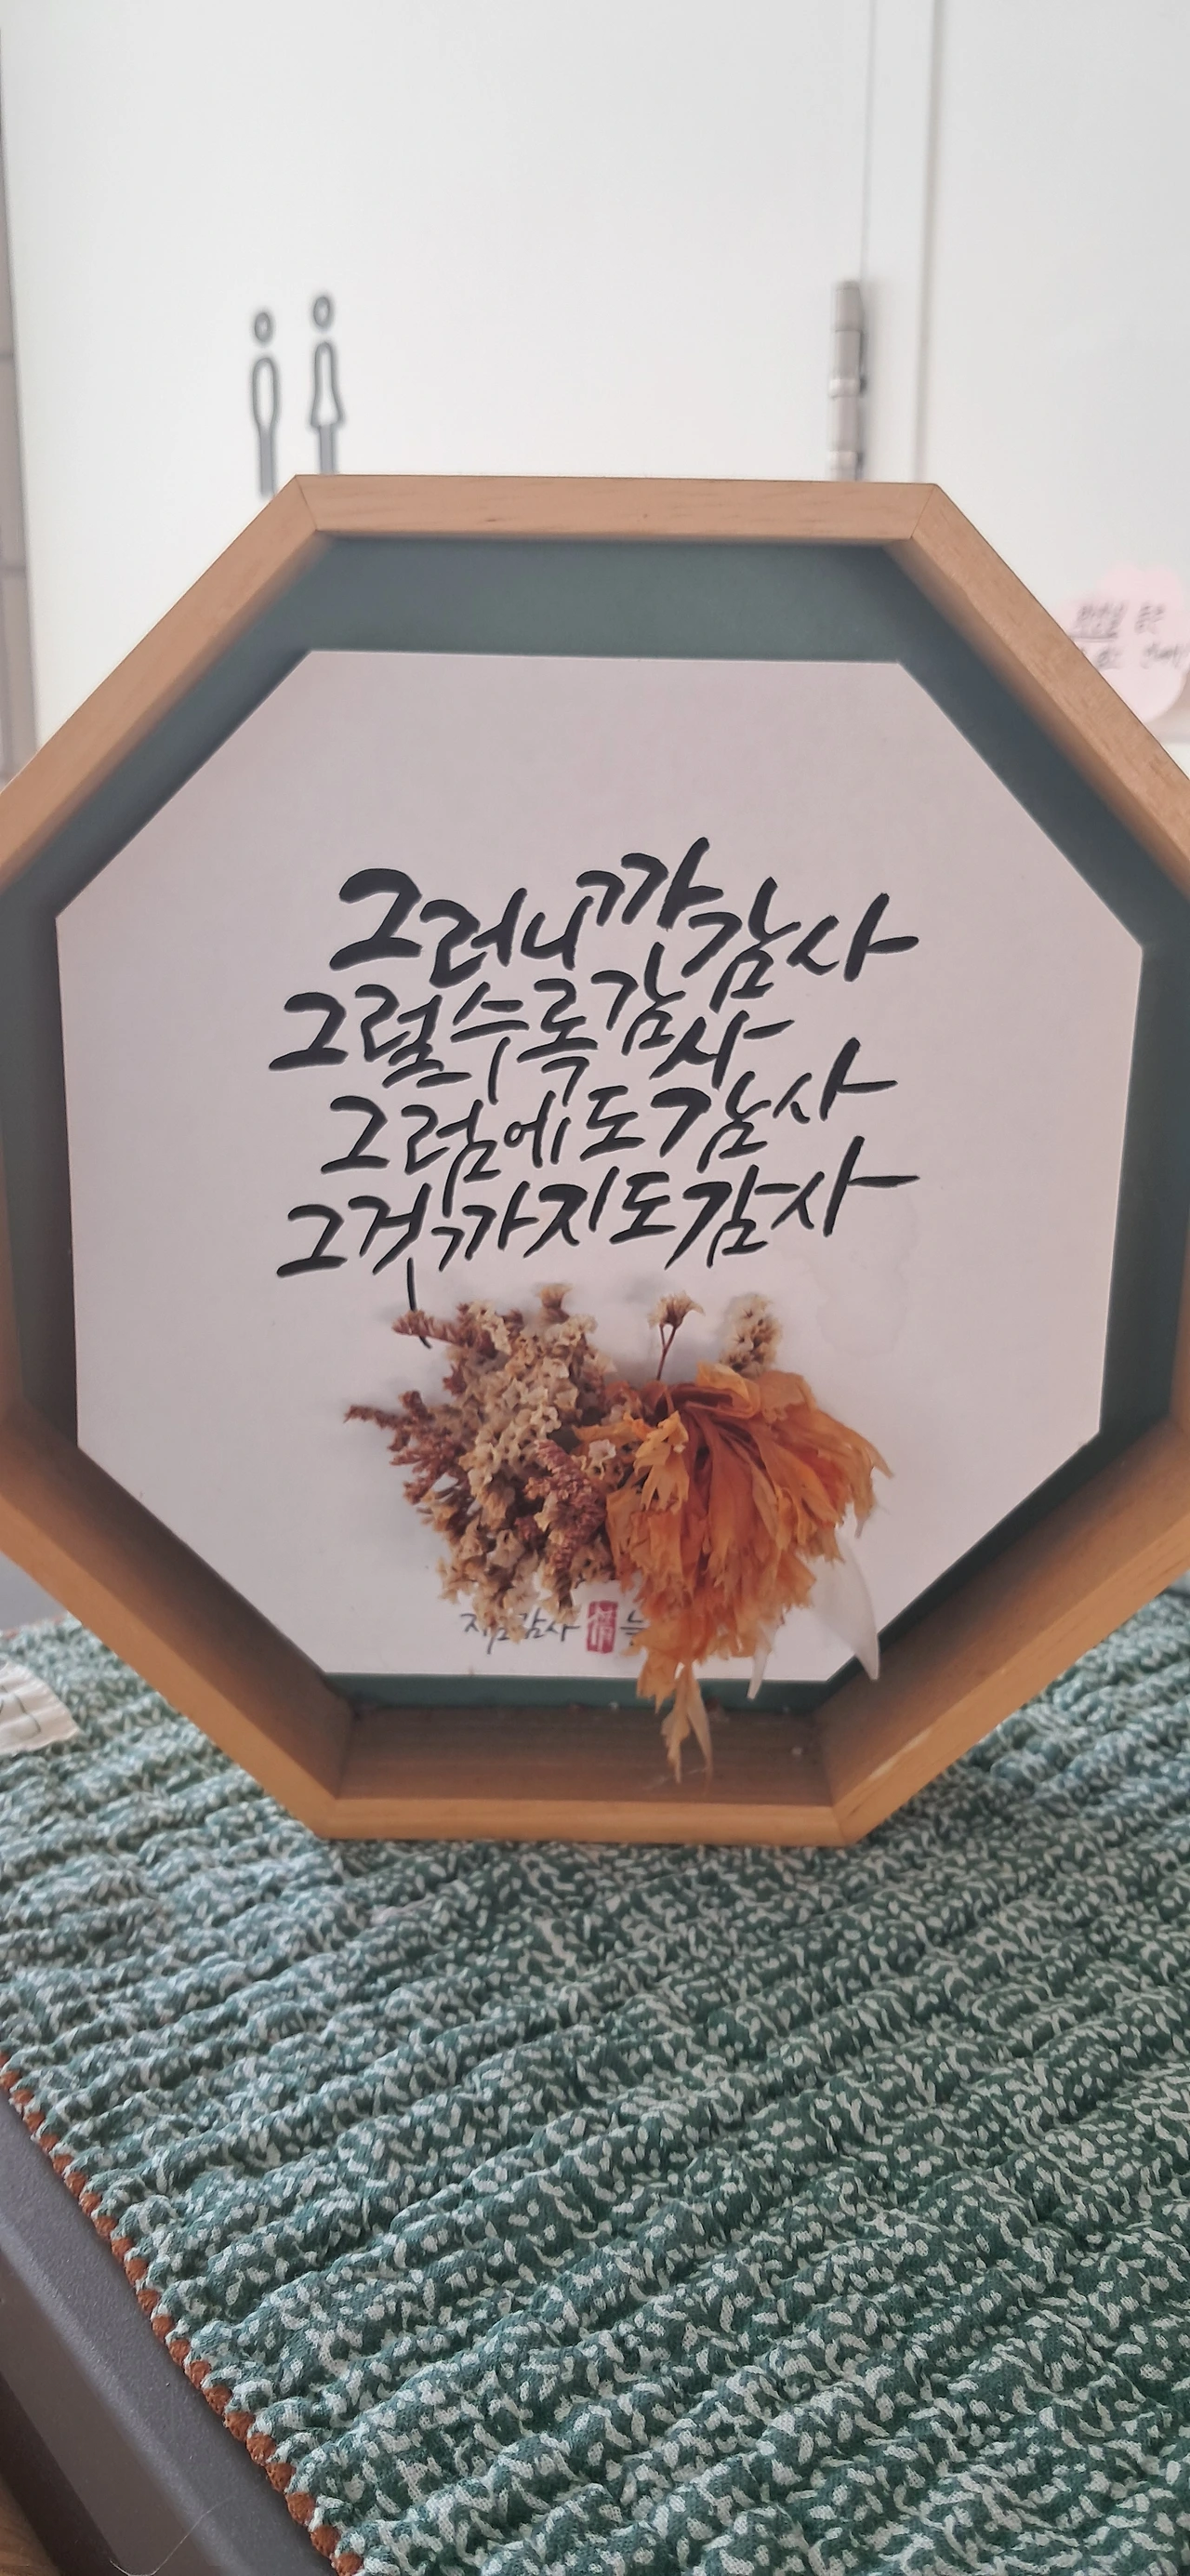 그러니까 감사
그럴수록 감사
그럼에도 감사
그것까지도 감사
감사